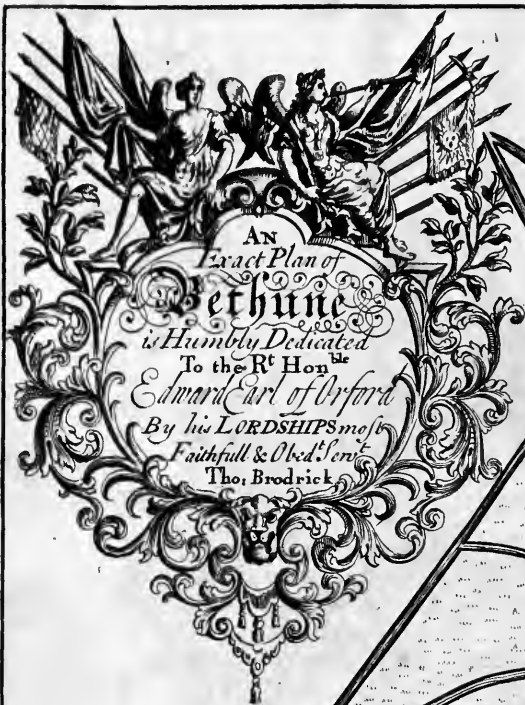 AN
Exact Plan of
Bethune
is Humbly Dedicated
To the Rt Honble
Edward Earl of Orford
By his LORDSHIPS most
Faithfull & Obedt Servt
Tho: Brodrick